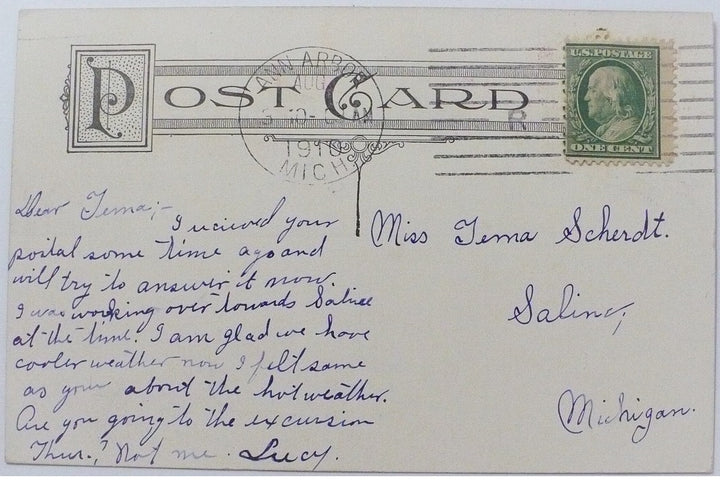 POST CARD
ANN ARBOR
AUG
10-
AM
1910
MICH.
U.S. POSTAGE
ONE CENT
Dear Tema;-
I recieved your
postal some time ago and
will try to answer it now.
I was working over towards Saline
at the time. I am glad we have
cooler weather now I felt same
as your about the hot weather.
Are you going to the excursion
Thur.? Not me. Lucy.
Miss Tema Scherdt.
Saline,
Michigan.